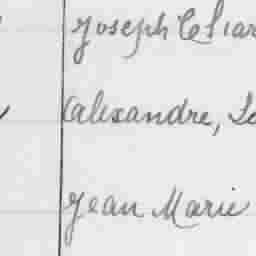 Joseph Cliar
Alexandre, Le
Jean Marie